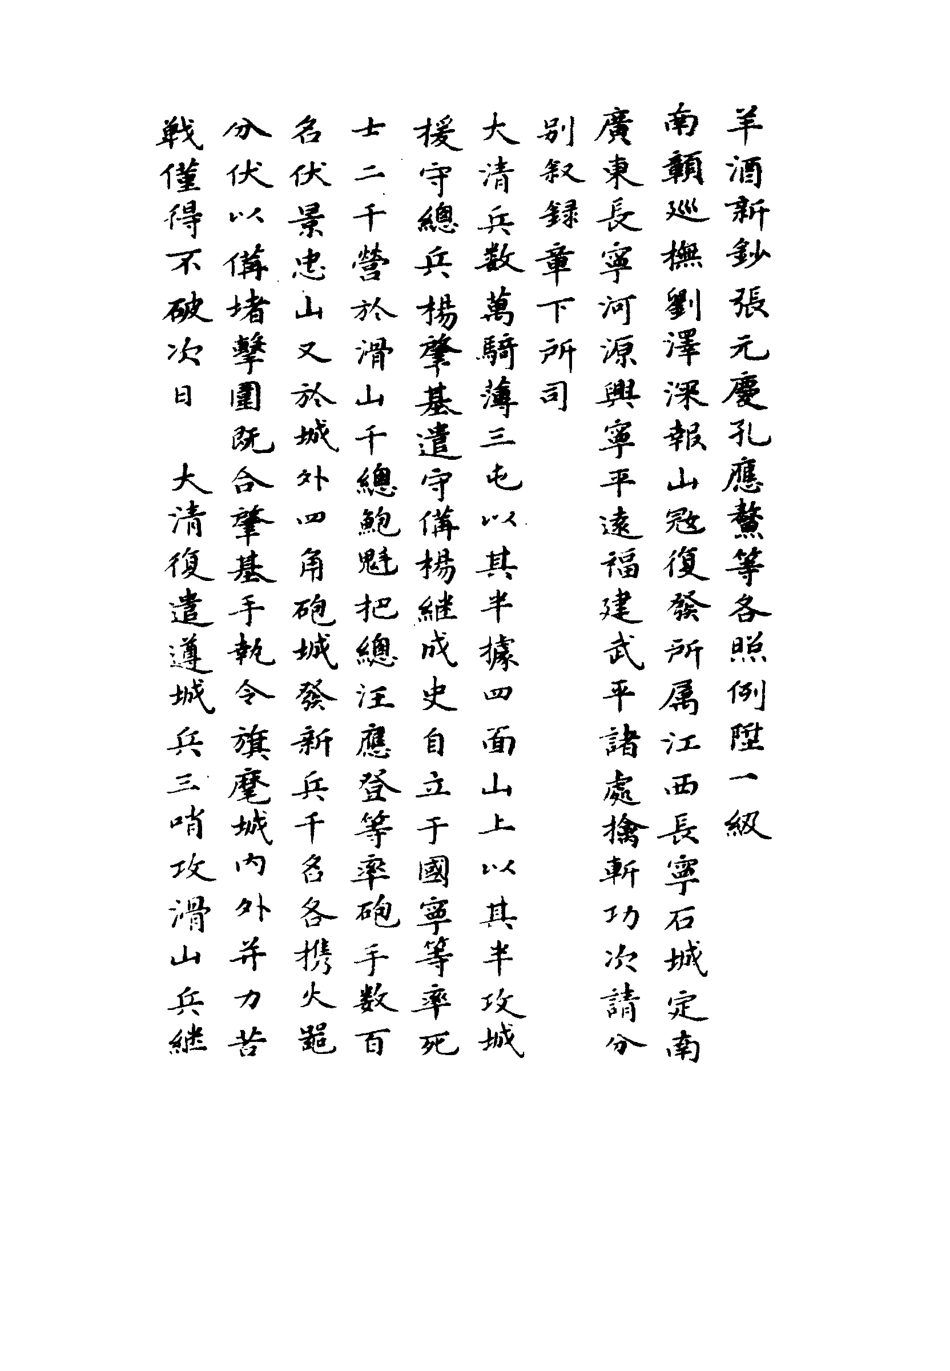 羊酒新鈔張元慶孔應鰲等各照例陞一級
南贛廵撫劉澤深報山㓂復發所属江西長寧石城定南
廣東長寧河源興寧平遠福建武平諸處擒斬功次請分
别叙録章下所司
大清兵数萬騎薄三屯以其半據四面山上以其半攻城
援守總兵楊肇基遣守備楊継成史自立于國寧等率死
士二千營於滑山千總鮑魁把總汪應登等率砲手数百
名伏景忠山又於城外四角砲城發新兵千名各携火噐
分伏以備堵擊圍既合肇基手執令旗麾城内外并力苦
戦僅得不破次日　大清復遣遵城兵三哨攻滑山兵継